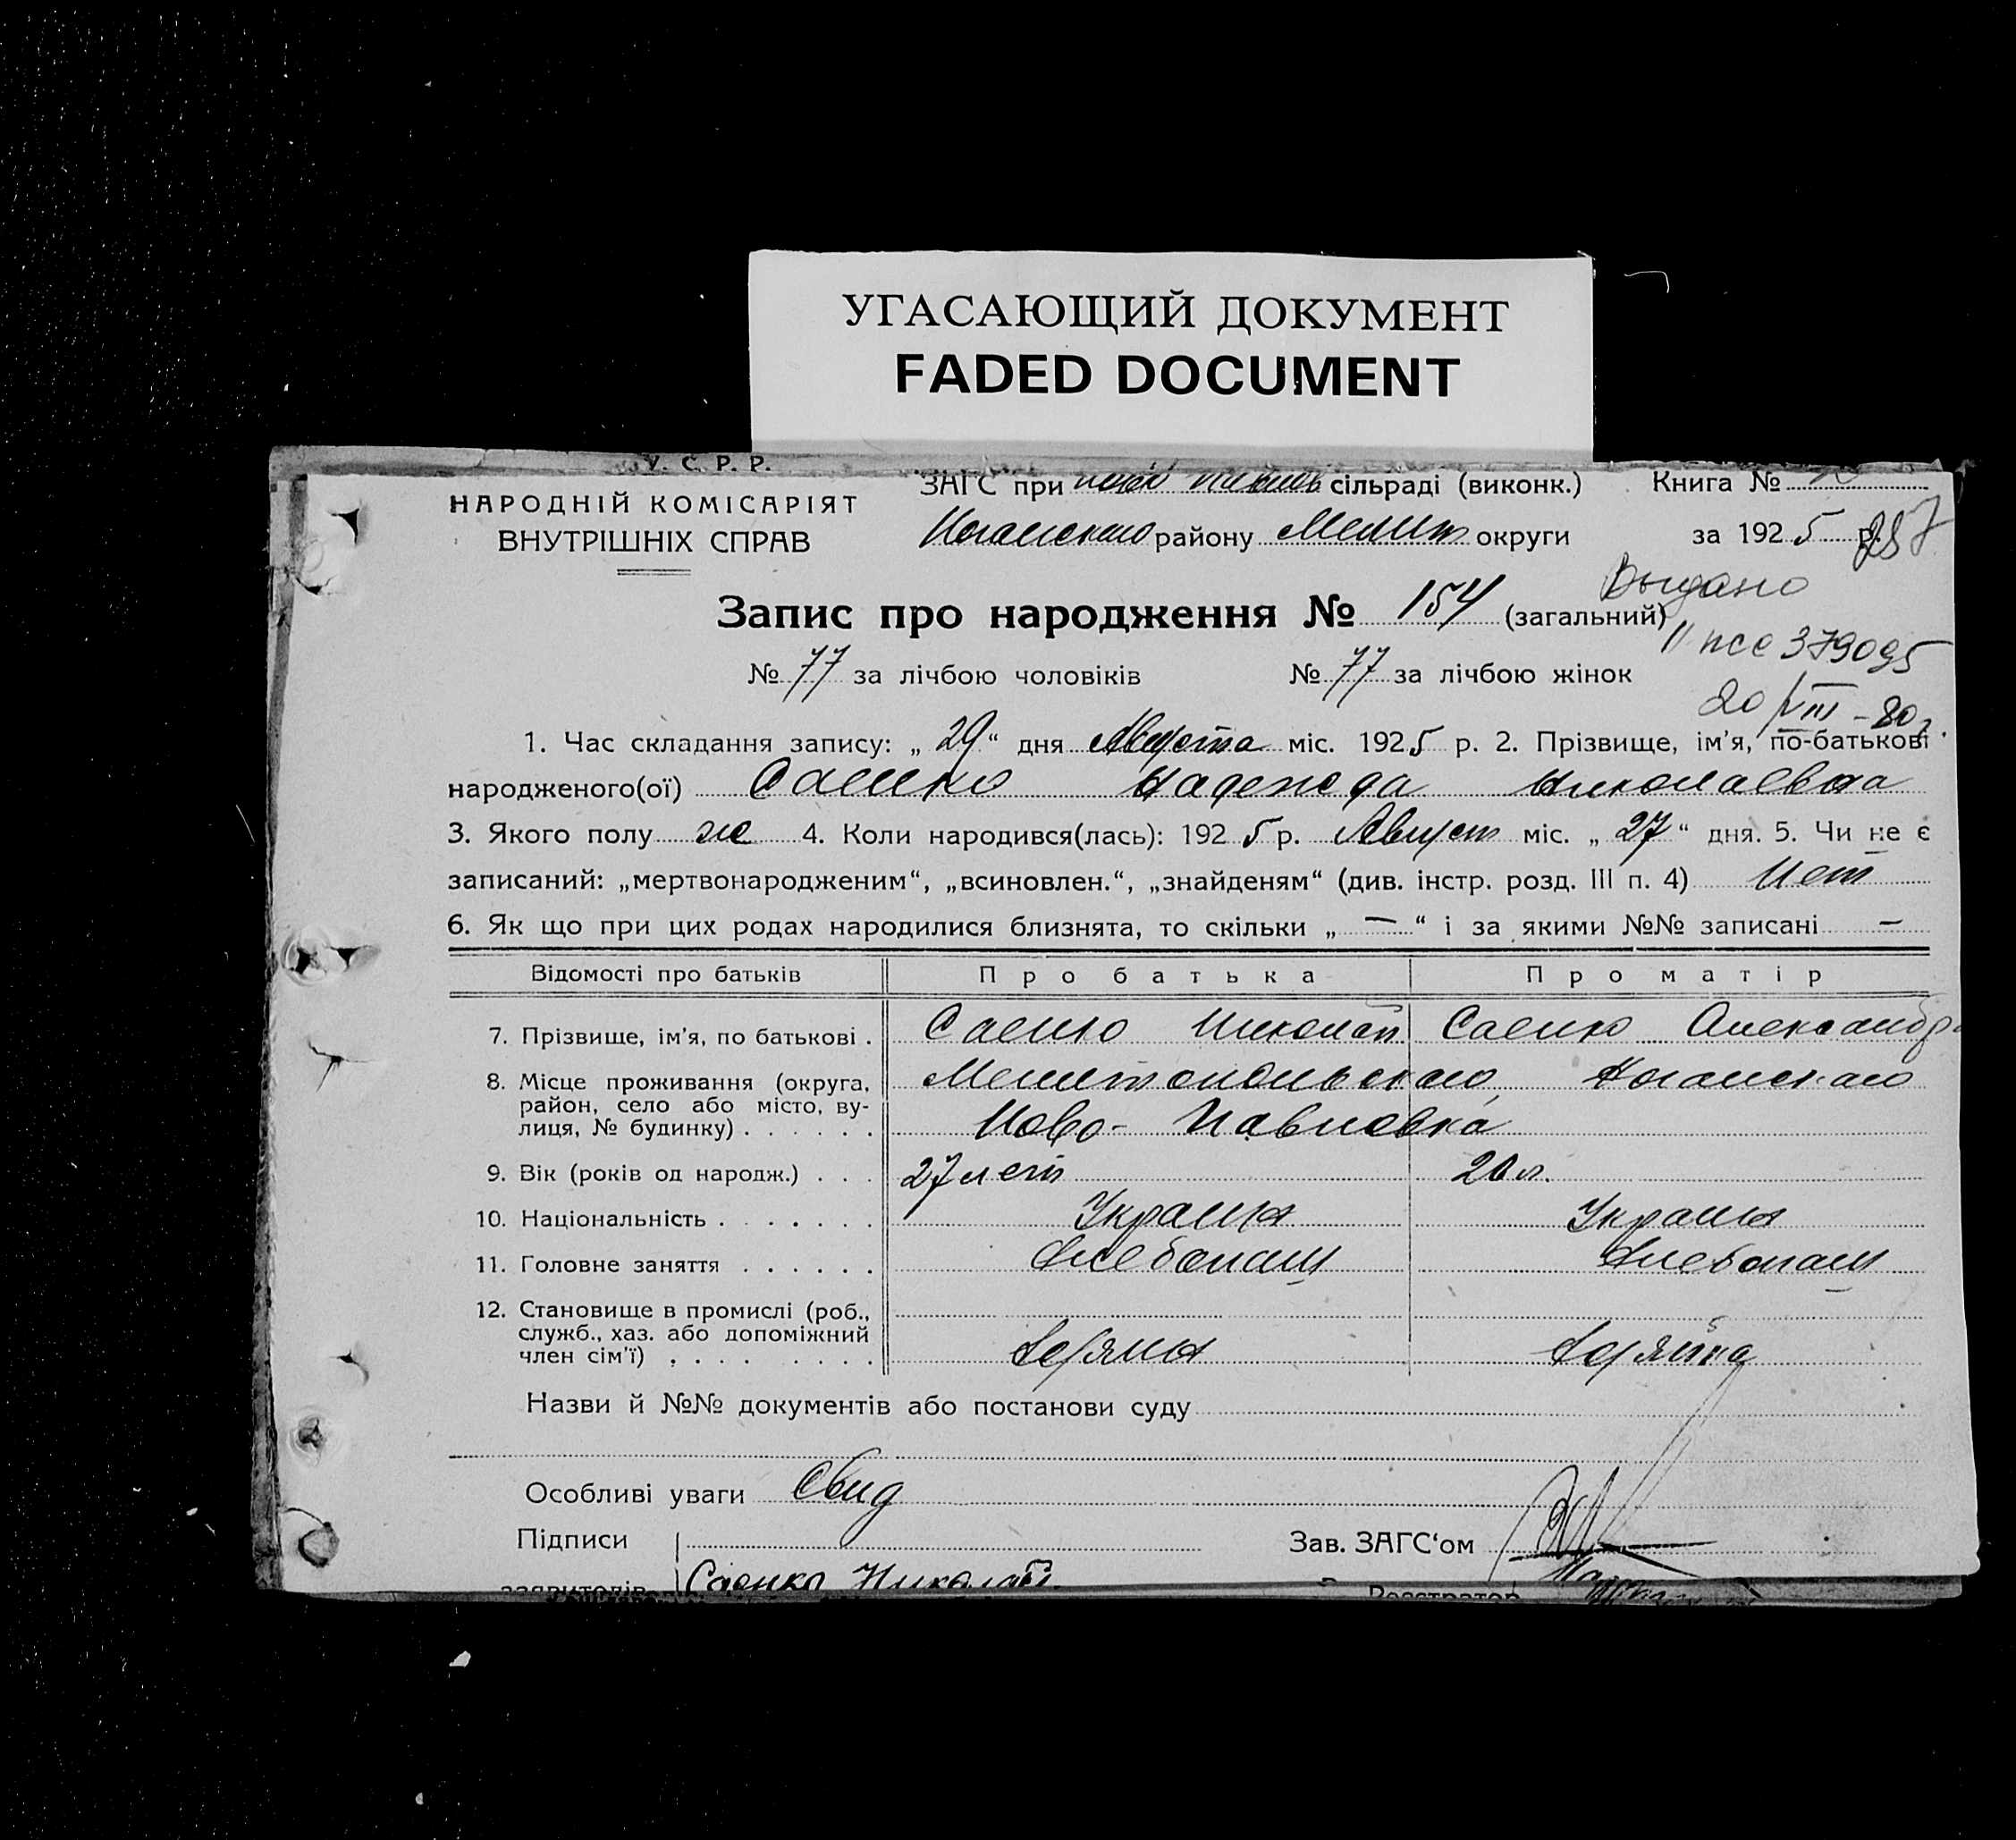 УГАСАЮЩИЙ ДОКУМЕНТ
FADED DOCUMENT
У. С. Р. Р.
НАРОДНІЙ КОМІСАРІЯТ
ВНУТРІШНІХ СПРАВ
ЗАГС при сільраді (виконк.)
Книга №
Ногайского району Мелит округи
за 1925 р. 257
Выдано
Запис про народження № 154 (загальний)
II псе 379095
№ 77 за лічбою чоловіків № 77 за лічбою жінок
20/VIII - 80 г.
1. Час складання запису: „ 29 “ дня Августа міс. 1925 р. 2. Прізвище, ім’я, по-батькові
народженого(ої) Саенко Надежда Николаевна
3. Якого полу ж 4. Коли народився(лась): 1925 р. Август міс. „ 27 “ дня. 5. Чи не є
записаний: „мертвонародженим“, „всиновлен.“, „знайденям“ (див. інстр. розд. III п. 4) Нет
6. Як що при цих родах народилися близнята, то скільки „ — “ і за якими №№ записані —
Відомості про батьків Про батька Про матір
7. Прізвище, ім’я, по батькові . Саенко Николай Саенко Александр
8. Місце проживання (округа, район, село або місто, вулиця, № будинку) . . . . . . Мелитопольского Ногайского
Ново-Павловка
9. Вік (років од народж.) . . . 27 лет 20 л.
10. Національність . . . . . . . Украин Украин
11. Головне заняття . . . . . . Хлебопаш Хлебопаш
12. Становище в промислі (роб.,
служб., хаз. або допоміжний
член сім’ї) . . . . . . . . .
Назви й №№ документів або постанови суду
Особливі уваги Свид
Підписи
Зав. ЗАГС‘ом
заявителів Саенко Николай
Реєстратор